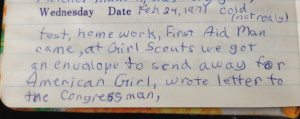 Wednesday Date Feb 24, 1971 Cold
(not realy)
test, home work, First Aid Man
came, at Girl Scouts we got
an envalope to send away for
American Girl, wrote letter to
the Congressman,